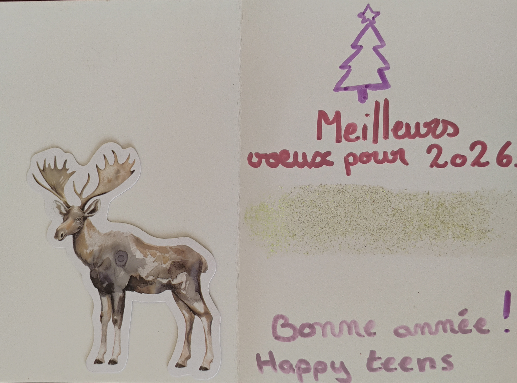 Meilleurs
voeux pour 2026.
Bonne année !
Happy teens